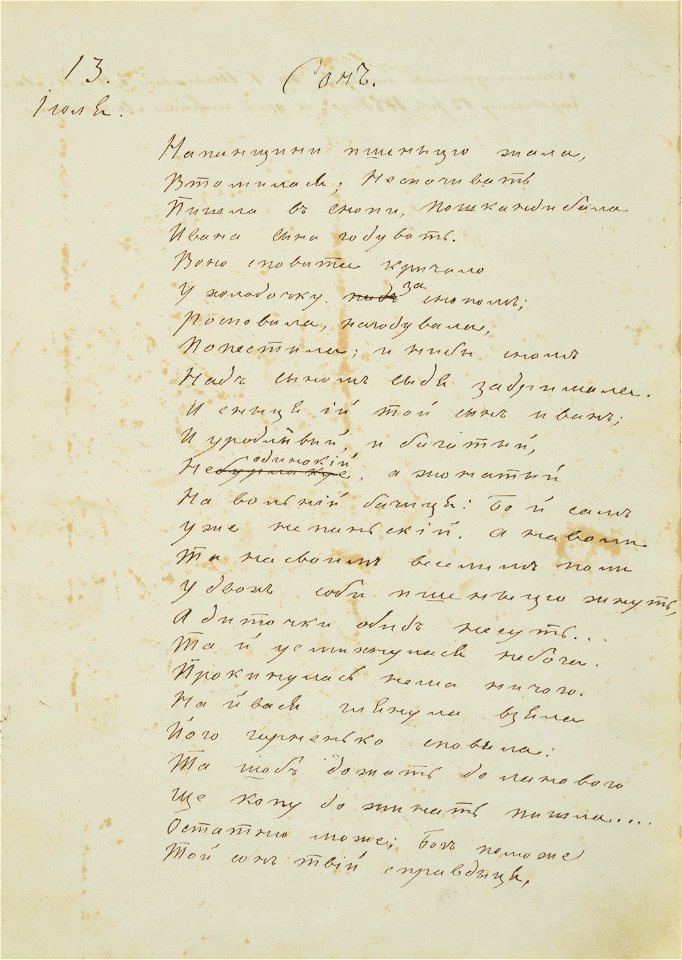 13.
Сонъ.
Іюля.
Напанщини пшеныцю жала,
Втомилася; Неспочивать
Пишла въ снопи, пошкандибала
Ивана сына годувать.
Воно сповите кричало
У холодочку. підъ за снопомъ;
Росповила, нагодувала,
Попестила; и ниби сномъ
Надъ сыномъ сыдя задримала.
И сныця ій той сынъ иванъ;
И уродлывий, и багатый,
Не одинокій, а жонатый
На вольній бачиця: Бо й самъ
Уже не панський. а на воли
Та на своимъ веселимъ поли
У двохъ соби пшеныцю жнуть,
А диточки обидъ несуть...
Та й усмихнулася небога.
Прокинулась нема ничого.
На йвася глянула взяла
Його гарненько сповыла:
Та щобъ дожать до ланового
Ще копу до жинать пишла....
Остатню може; Богъ поможе
Той сонъ твій справдыця.